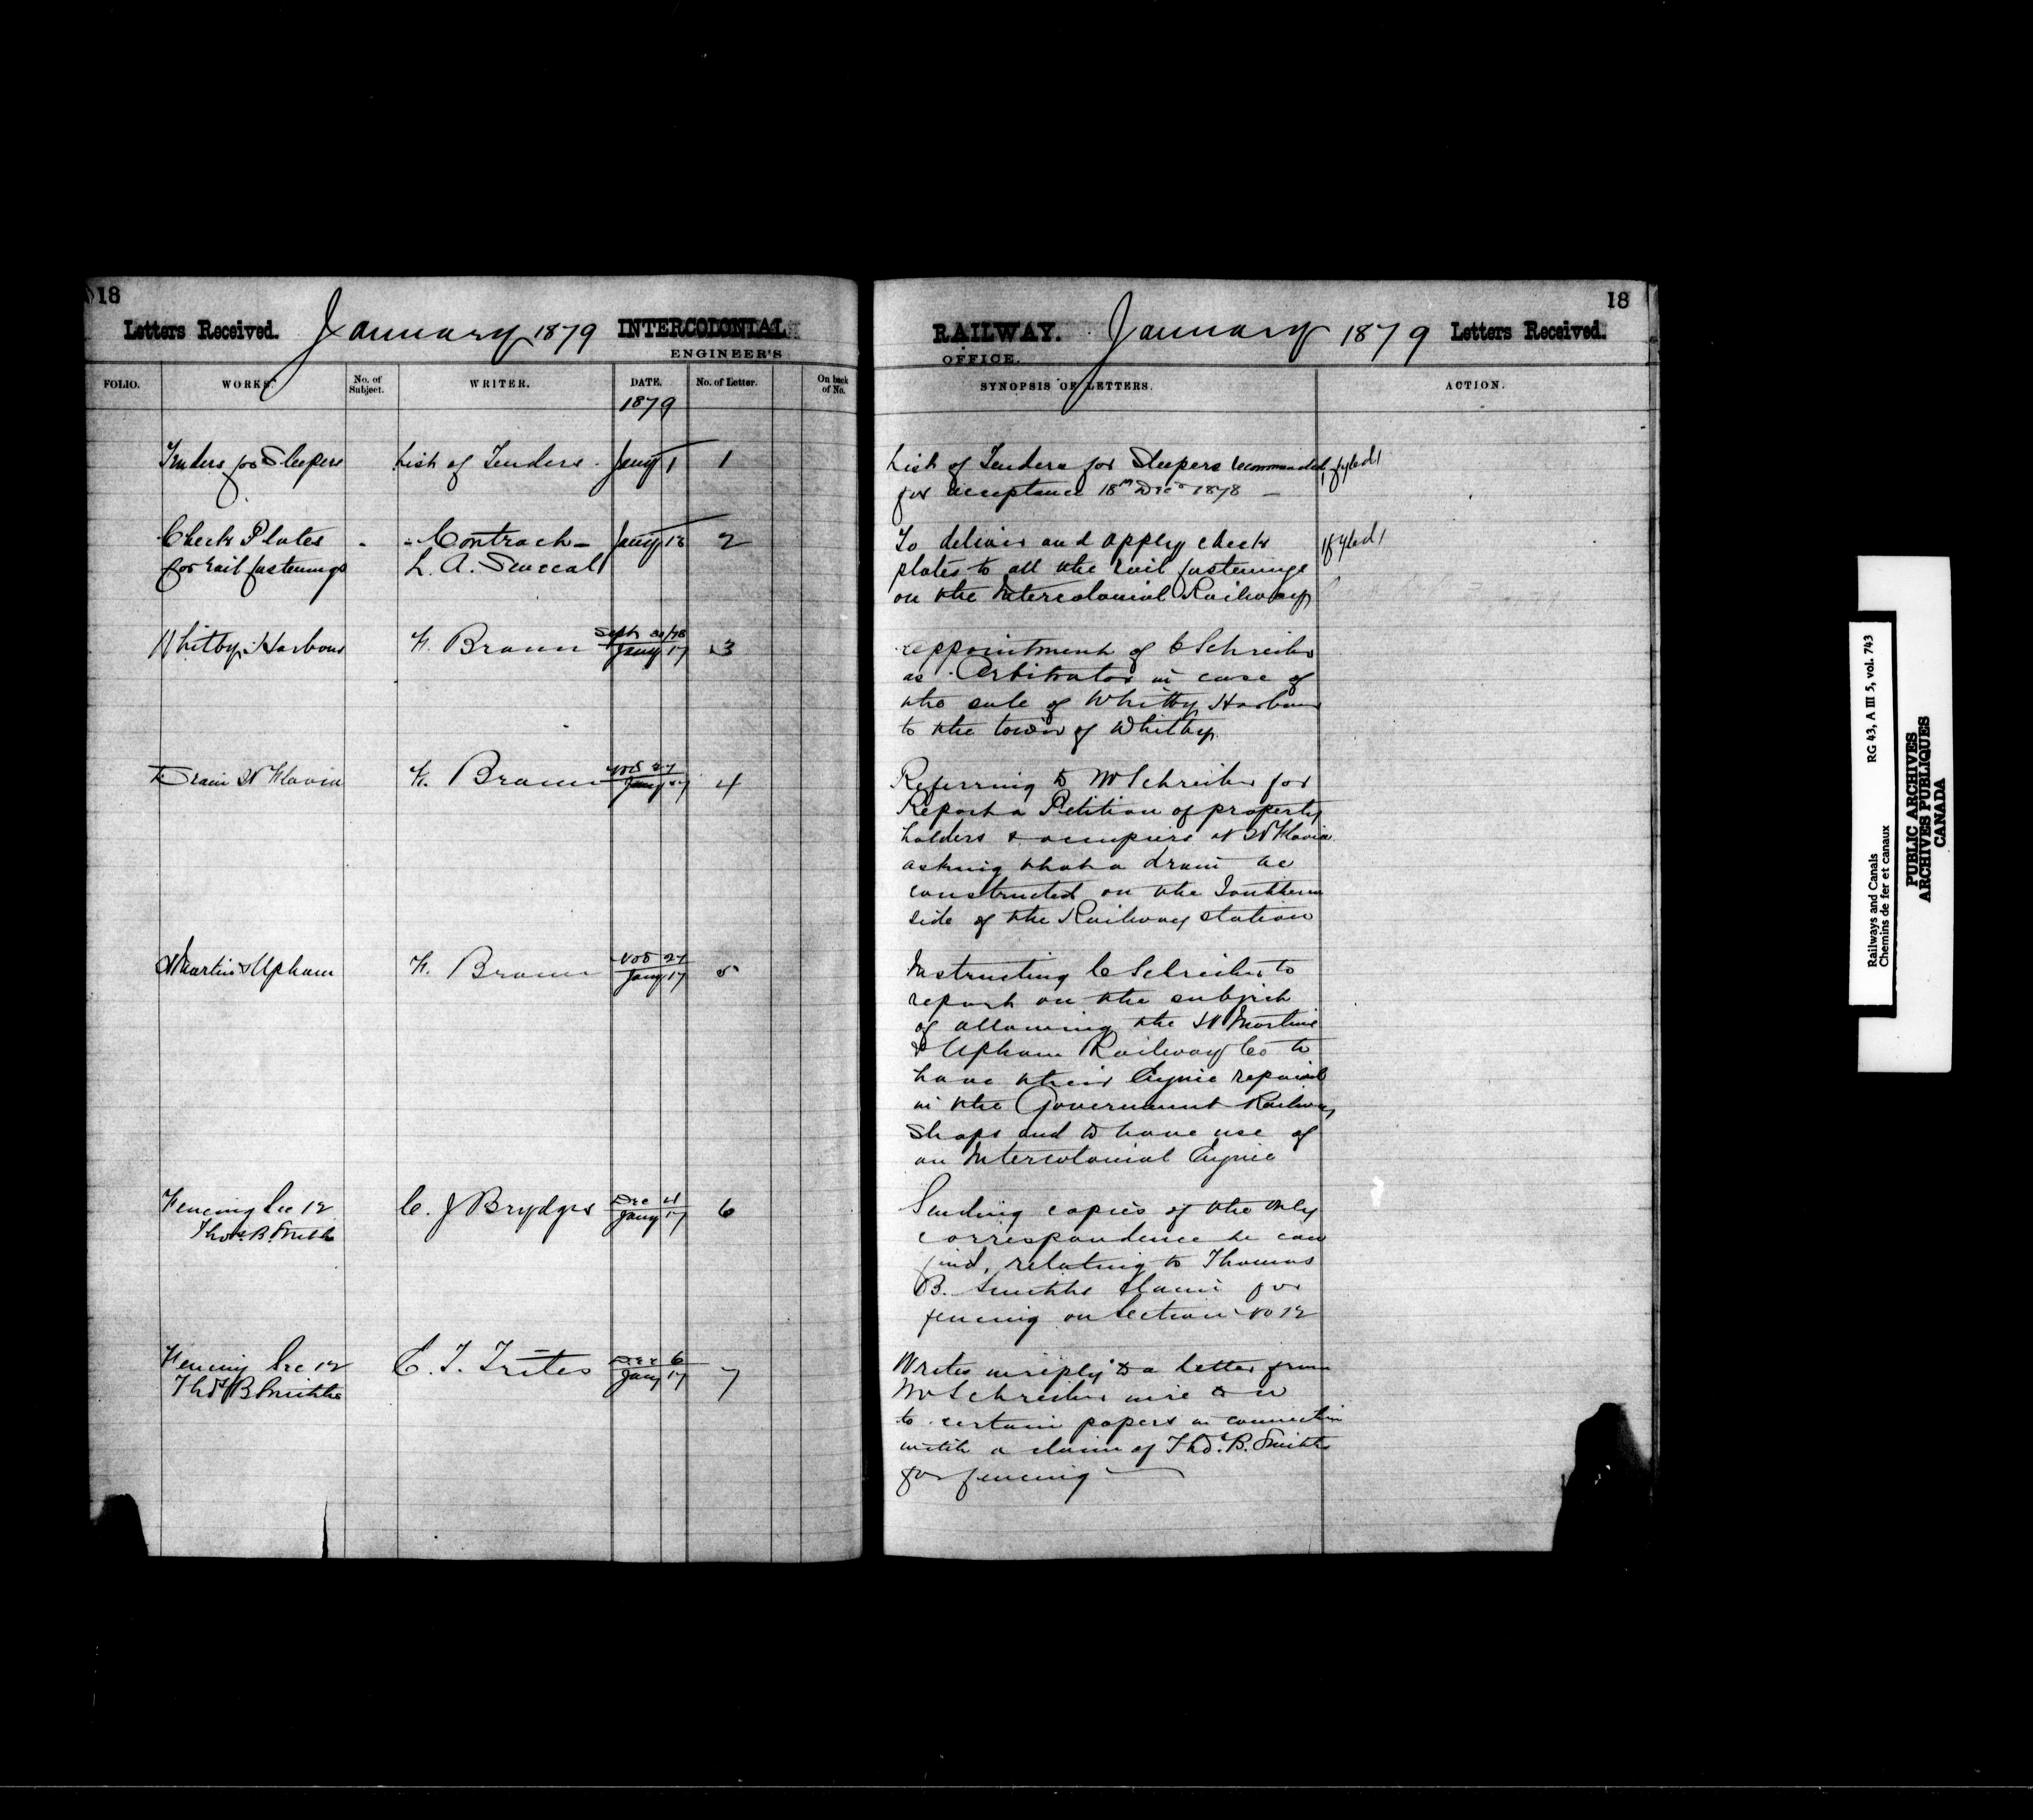 18
Letters Received. January 1879 INTERCOLONIAL
ENGINEER'S
FOLIO. WORKS. No. of Subject. WRITER. DATE. No. of Letter. On back of No.
1879
Tenders for Sleepers List of Tenders - Jany 1 1
Check Plates - Contract - Jany 13 2
for rail fastenings L. A. Senecal
Whitby Harbour F. Braun Sept 30/78 Jany 17 3
Drain St Flavia F. Braun Nov 27 Jany 17 4
St Martins & Upham F. Braun Nov 27 Jany 17 5
Fencing Sec 12 C. J Brydges Dec 4 Jany 17 6
Thos. B. Smith
Fencing Sec 12 C. T. Trites Dec 6 Jany 17 7
Thos B Smith
18
RAILWAY. January 1879 Letters Received.
OFFICE.
SYNOPSIS OF LETTERS. ACTION.
List of Tenders for Sleepers recommended fyled
for acceptance 18th Decr 1878 -
To deliver and apply check fyled
plates to all the rail fastenings
on the Intercolonial Railway
appointment of C Schreiber
as Arbitrator in case of
the sale of Whitby Harbour
to the town of Whitby.
Referring to Mr Schreiber for
Report a Petition of property
holders & occupiers at St Flavia
asking that a drain be
constructed on the Southern
side of the Railway station
Instructing C Schreiber to
report on the subject
of allowing the St Martins
& Upham Railway Co to
have their Engine repaired
in the Government Railway
Shops and to have use of
an Intercolonial Engine
Sending copies of the only
correspondence he can
find, relating to Thomas
B. Smiths Claim for
fencing on Section No 12
Writes in reply to a letter from
Mr Schreiber
to certain papers in connection
with a claim of Thos. B. Smith
for fencing
Railways and Canals RG 43, A III 5, vol. 743
Chemins de fer et canaux
PUBLIC ARCHIVES
ARCHIVES PUBLIQUES
CANADA